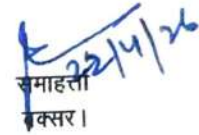 22/4/26
समाहर्त्ता
बक्सर।